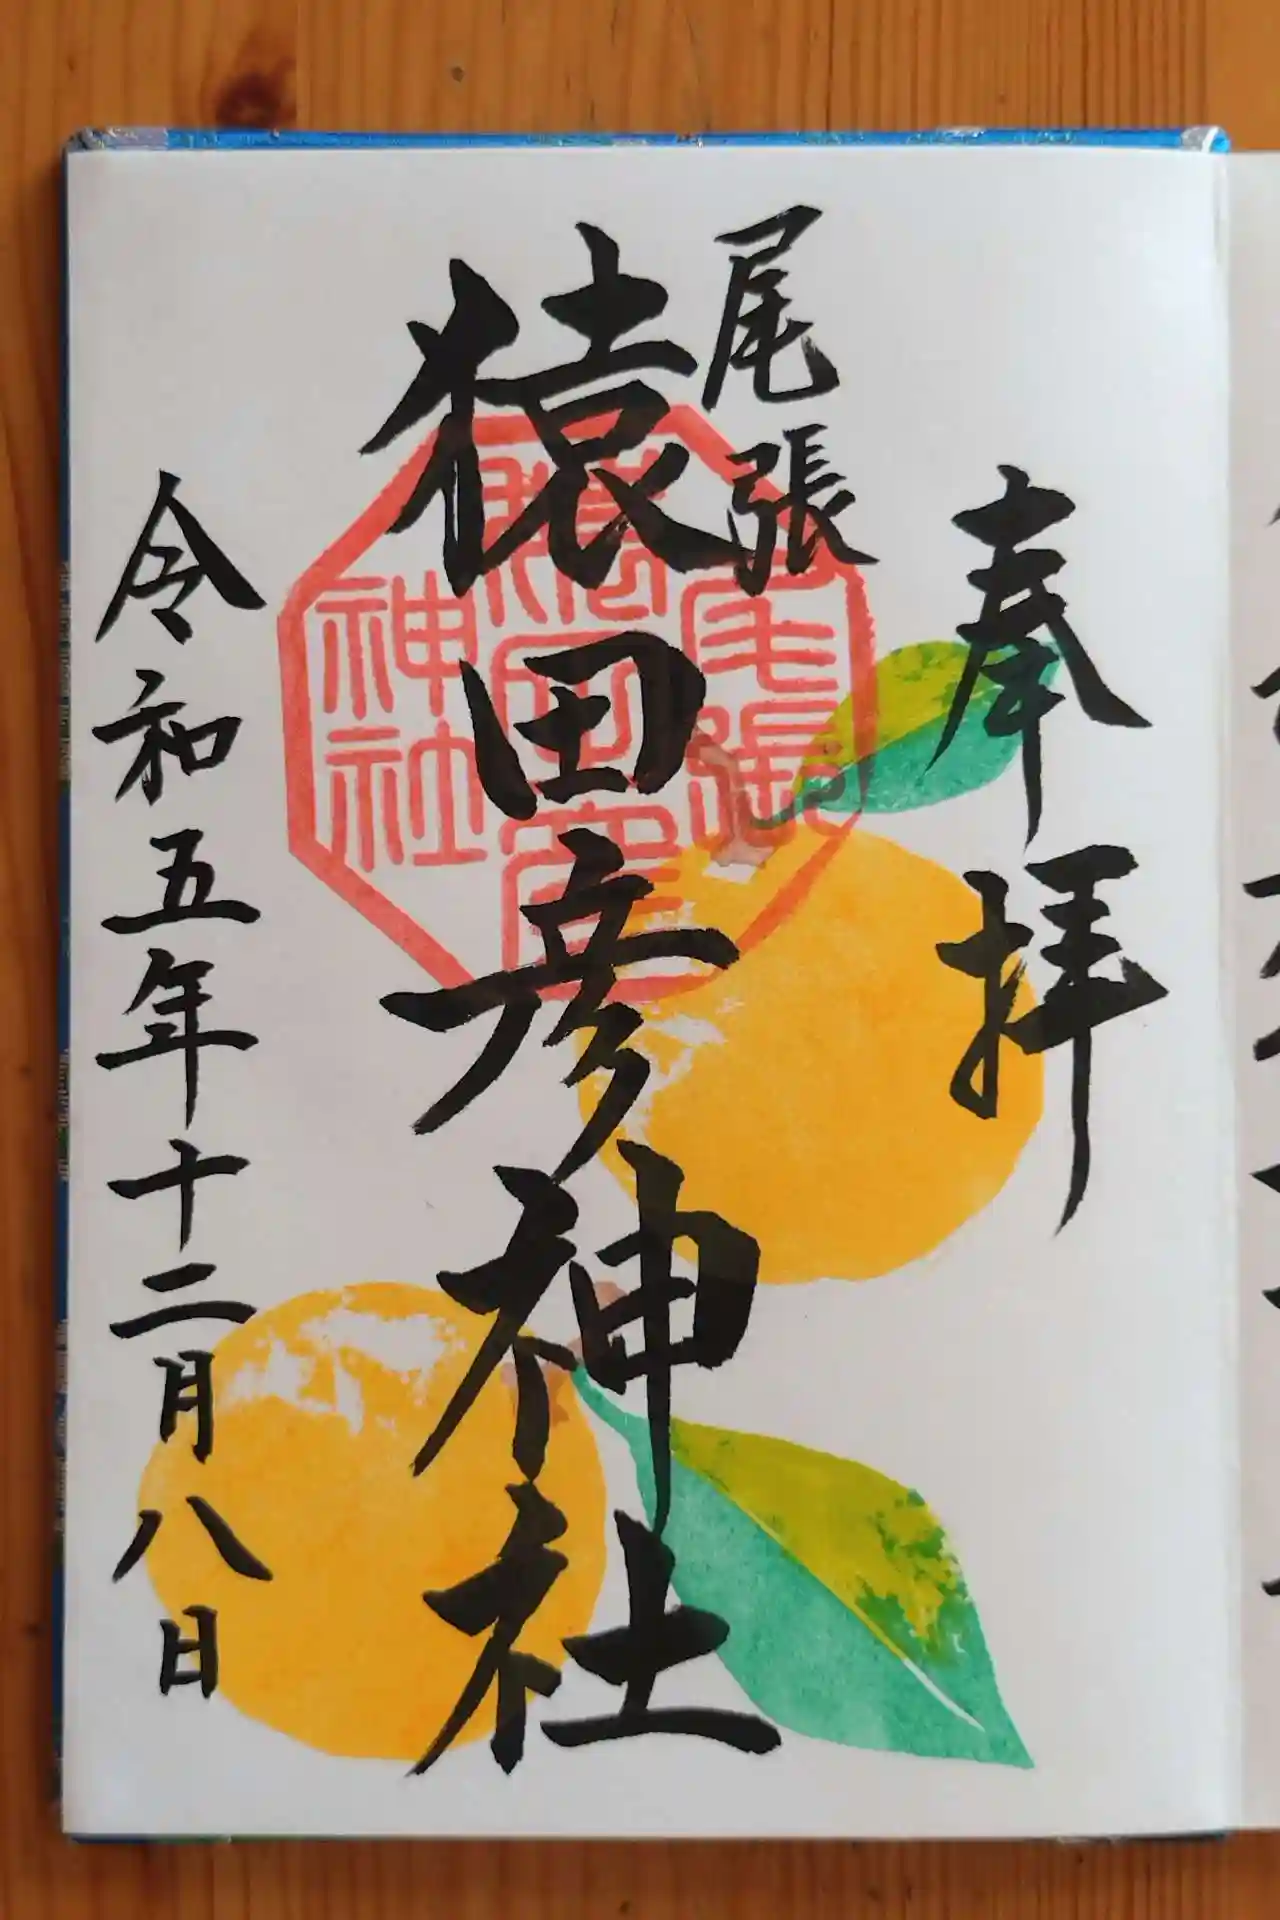 奉拝
尾張
猿田彦神社
尾張
猿田彦
神社
令和五年十二月八日